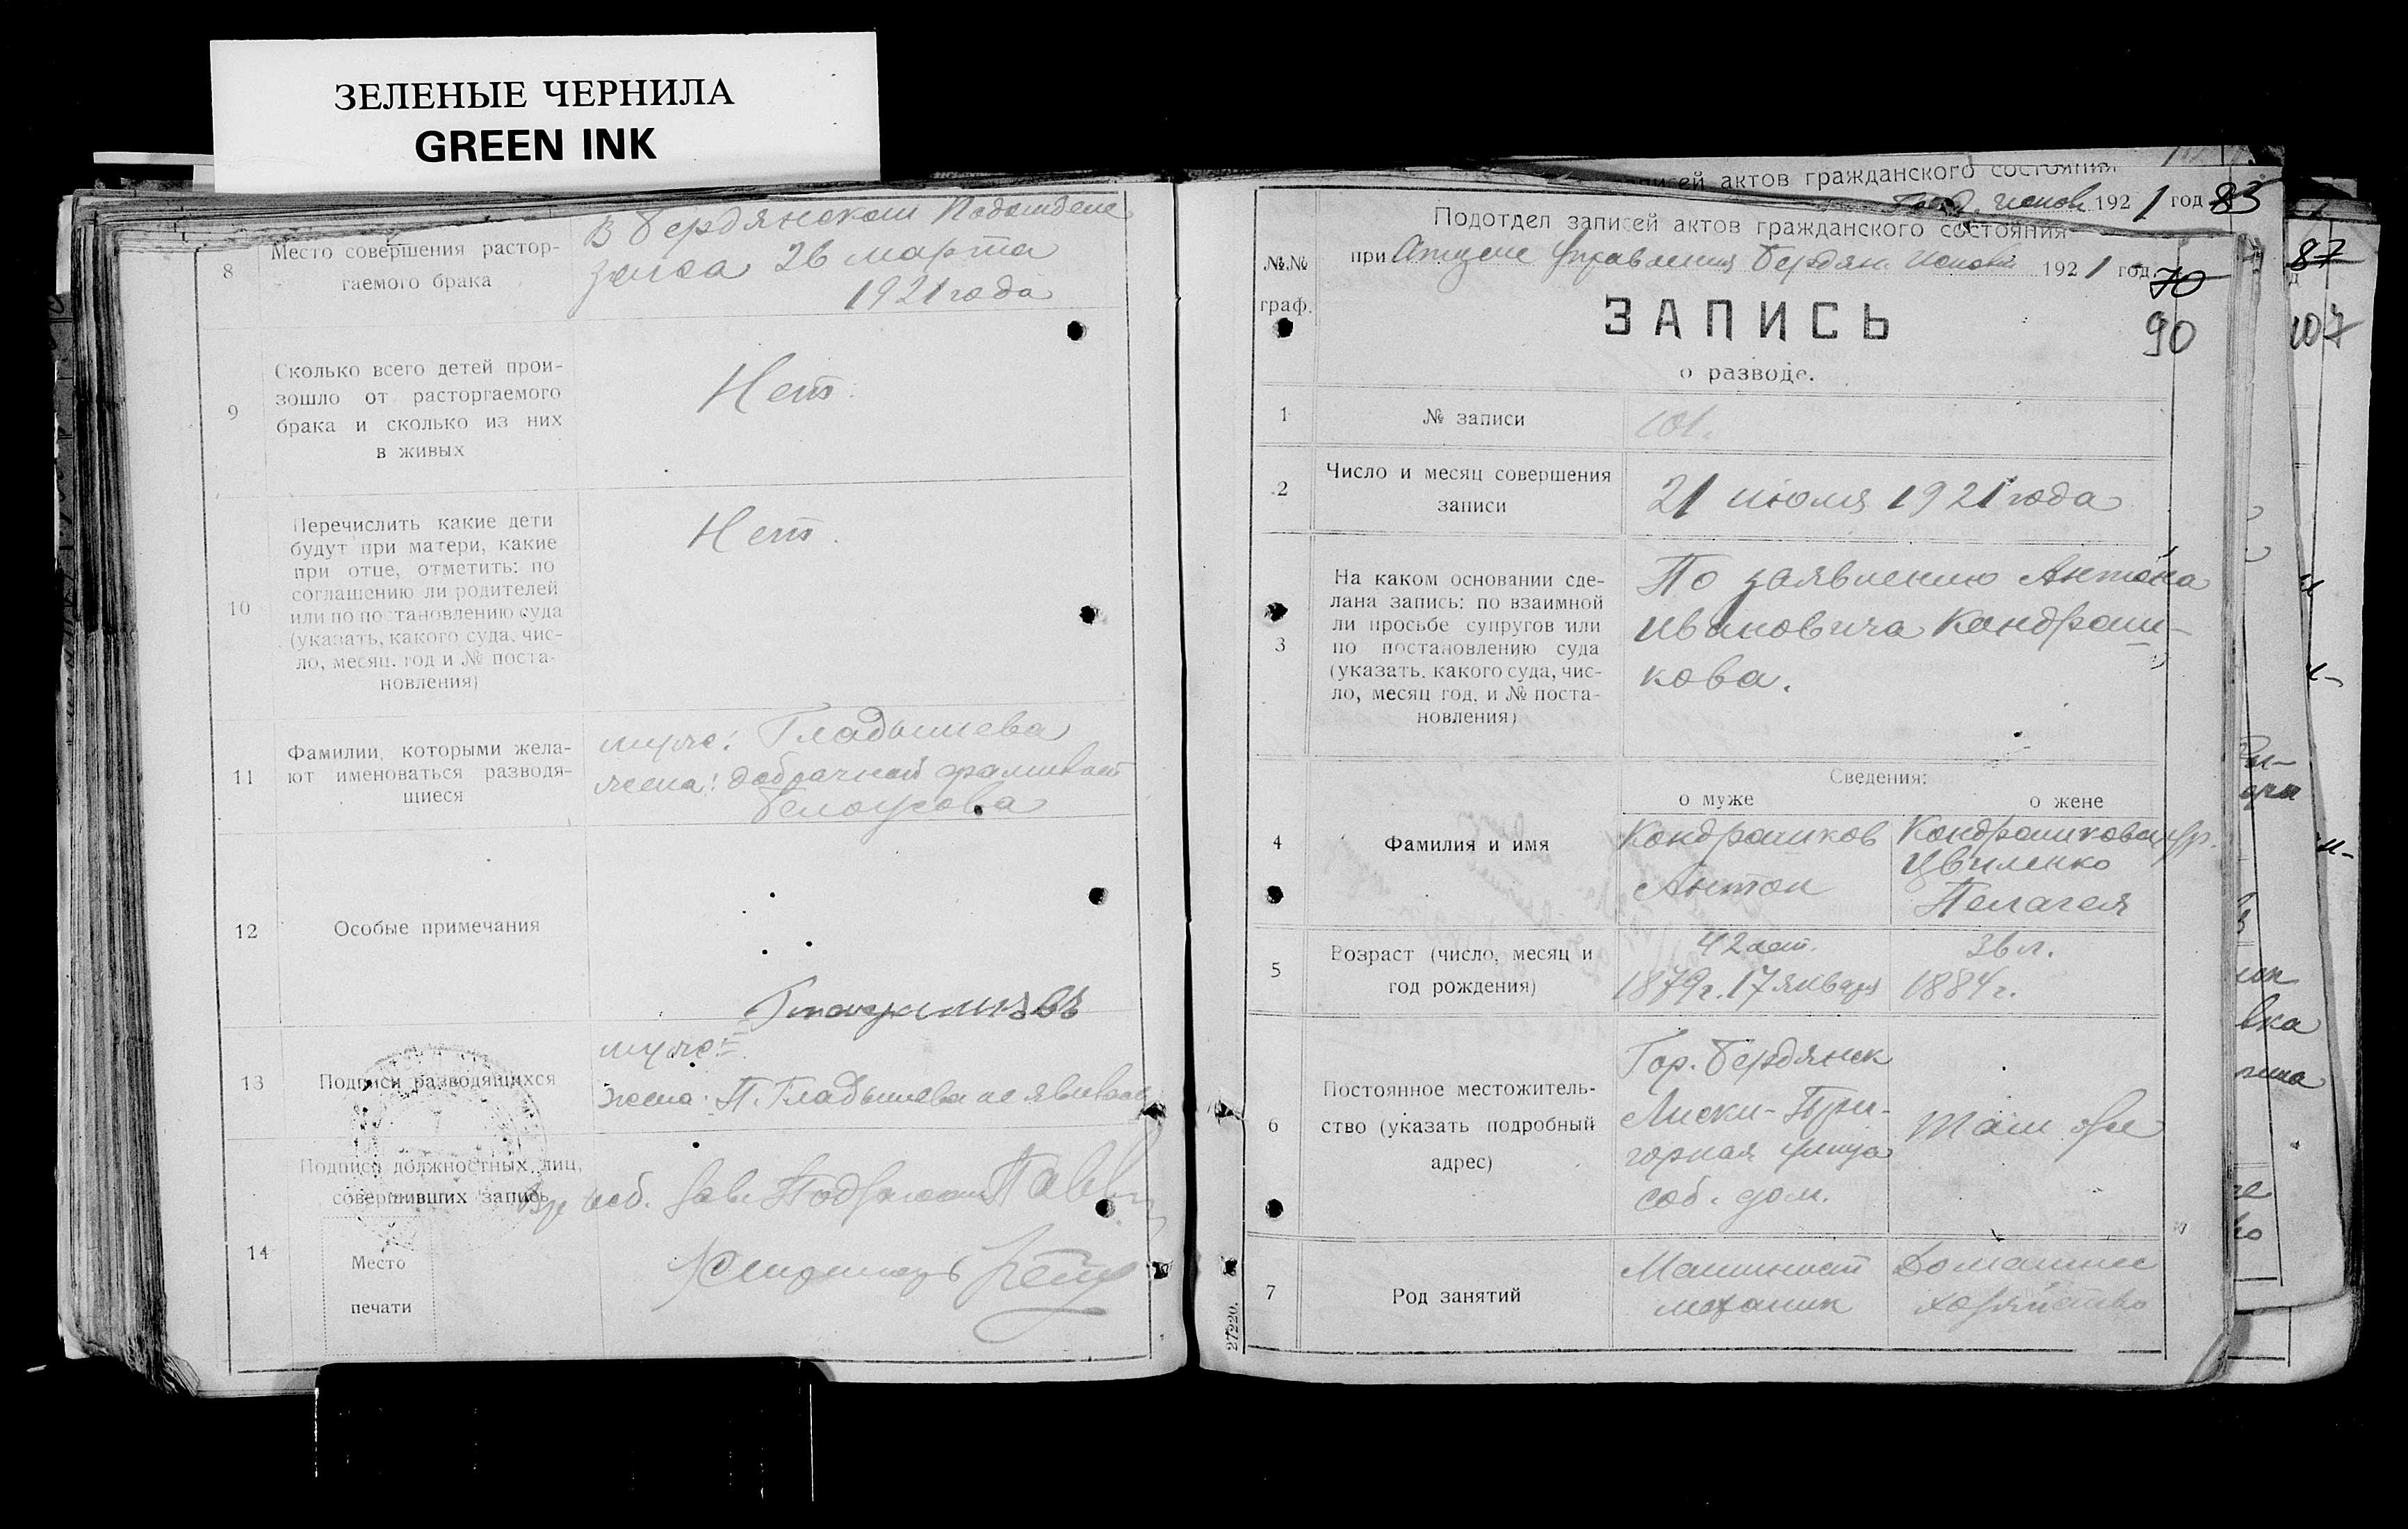 ЗЕЛЕНЫЕ ЧЕРНИЛА
GREEN INK
8
Место совершения растор-
гаемого брака
В Бердянском Подотделе
загса 26 марта
1921 года
9
Сколько всего детей прои-
зошло от расторгаемого
брака и сколько из них
в живых
Нет.
10
Перечислить какие дети
будут при матери, какие
при отце, отметить: по
соглашению ли родителей
или по постановлению суда
(указать, какого суда, чис-
ло, месяц, год и № поста-
новления)
Нет.
11
Фамилии, которыми жела-
ют именоваться разводя-
щиеся
муж: Гладышева
жена: добрачной
Белоусова
12
Особые примечания
13
Подписи разводящихся
муж:
жена: П. Гладышева не
14
Подписи должностных лиц,
совершивших запись
Место
печати
записей актов гражданского состояния
1921 год 83
Подотдел записей актов гражданского состояния
при Отделе Управления Бердян. 1921 год.
70
90
№№
граф.
ЗАПИСЬ
о разводе.
1
№ записи
101.
2
Число и месяц совершения
записи
21 июля 1921 года
3
На каком основании сде-
лана запись: по взаимной
ли просьбе супругов или
по постановлению суда
(указать, какого суда, чис-
ло, месяц год, и № поста-
новления)
По заявлению Антона
Ивановича Кондраш-
кова.
Сведения:
о муже
о жене
4
Фамилия и имя
Кондрашков
Антон
Кондрашкова ур.
Цвиленко
Пелагея
5
Возраст (число, месяц и
год рождения)
42 лет.
1879г. 17 января
36 л.
1884 г.
6
Постоянное местожитель-
ство (указать подробный
адрес)
Гор. Бердянск
Лиски-При-
горная улица
соб. дом.
Там же
7
Род занятий
Машинист
механик
Домашнее
хозяйство
27220.
87
107